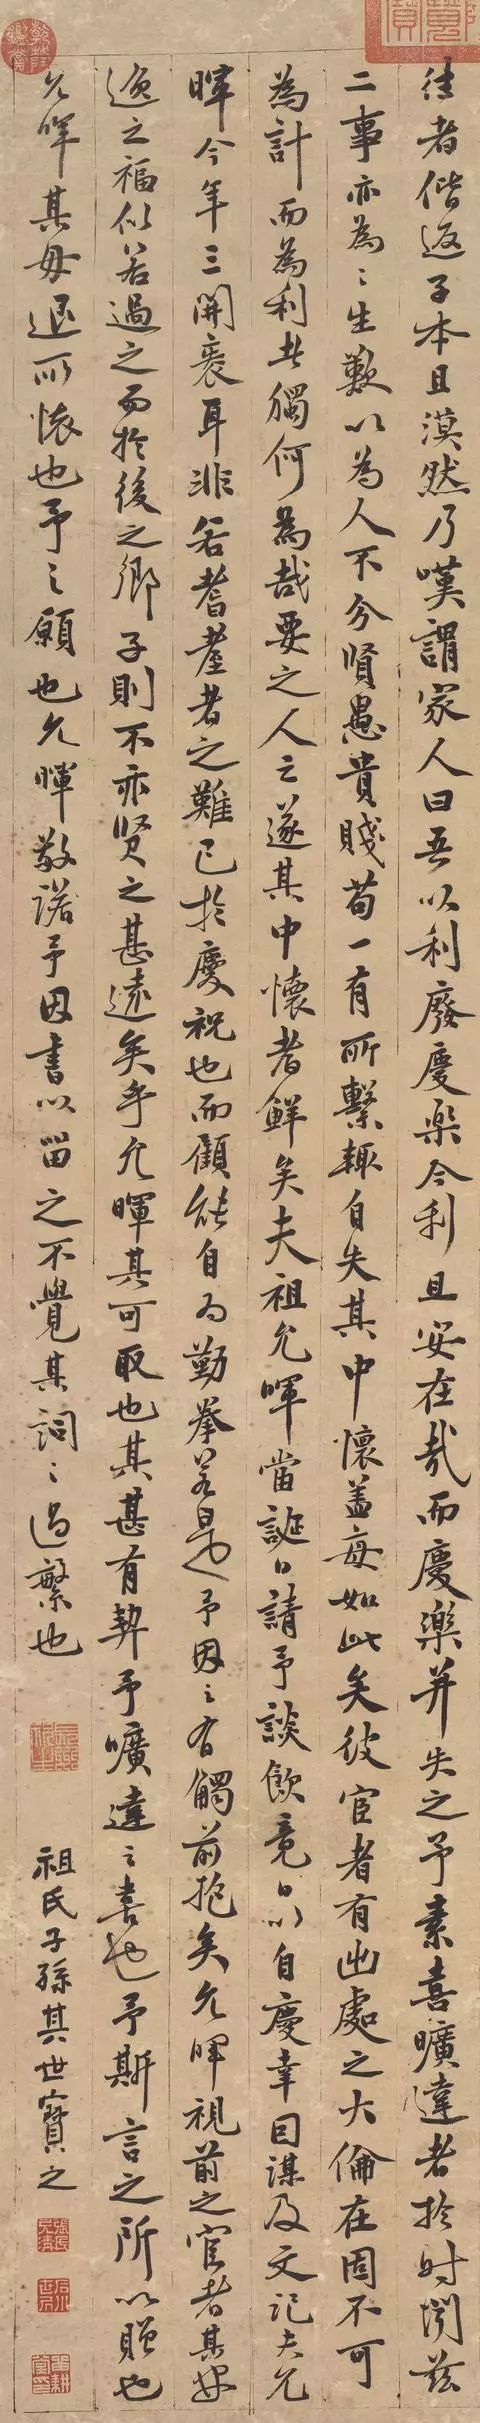 往者偕返子本且漠然乃嘆謂家人曰吾以利廢慶樂今利且安在哉而慶樂并失之予素喜曠達者於時閔茲
二事亦為之生歎以為人不分賢愚貴賤苟一有所繫輒自失其中懷盖每如此矣彼宦者有出處之大倫在固不可
為計而為利者獨何為哉要之人之遂其中懷者鮮矣夫祖允暉當誕日請予談飲竟日以自慶幸因謀及文記夫允
暉今年三開袠耳非若耆耋者之難已於慶祝也而顧能自為勤拳若是予因之有觸前抱矣允暉視前之宦者其安
逸之福似若過之而於後之鄉子則不亦賢之甚遠矣乎允暉其可取也其甚有契予曠達之喜也予斯言之所以贈也
允暉其毋退所懷也予之願也允暉敬諾予因書以留之不覺其詞之過繁也
祖氏子孫其世寶之